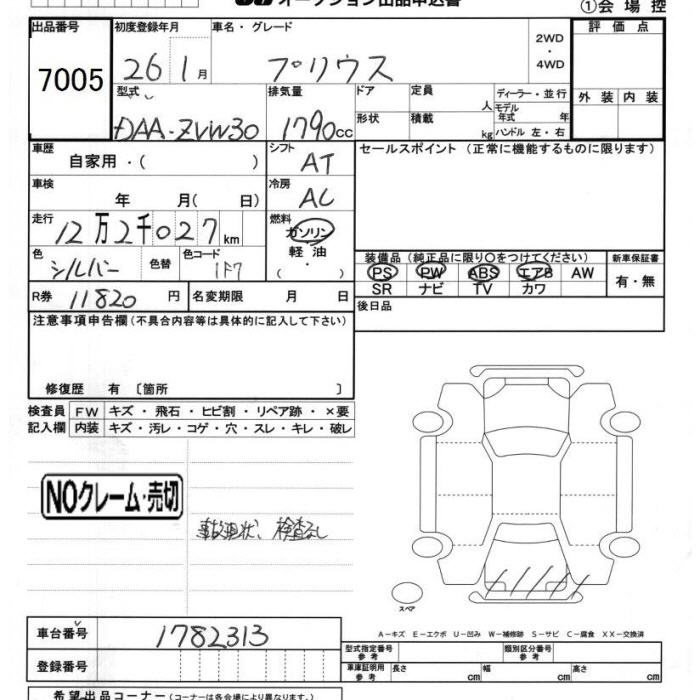 オークション出品申込書
①会場控
出品番号
7005
初度登録年月
26 1月
車名・グレード
プリウス
2WD
・
4WD
評価点
外装 内装
型式
DAA-ZVW30
排気量
1790cc
ドア
定員
人
形状
積載
kg
ディーラー・並行
モデル年式 年
ハンドル 左・右
車歴
自家用・( )
シフト
AT
セールスポイント(正常に機能するものに限ります)
車検
年 月( 日)
冷房
AC
走行
12万2千027km
燃料
ガソリン
軽油
( ・ )
色
シルバー
色替
色コード
1F7
装備品(純正品に限り○をつけてください)
PS PW ABS エアB AW
SR ナビ TV カワ
新車保証書
有・無
R券 11820円
名変期限 月 日
後日品
注意事項申告欄(不具合内容等は具体的に記入して下さい)
修復歴 有〔箇所 〕
検査員 FW キズ・飛石・ヒビ割・リペア跡・×要
記入欄 内装 キズ・汚レ・コゲ・穴・スレ・キレ・破レ
NOクレーム・売切
事故現状、検査なし
スペア
A-キズ E-エクボ U-凹み W-補修跡 S-サビ C-腐食 XX-交換済
車台番号
1782313
登録番号
型式指定番号
類別区分番号
車庫証明用参考 長さ cm 幅 cm 高さ cm
希望出品コーナー(コーナーは各会場により異なります。)